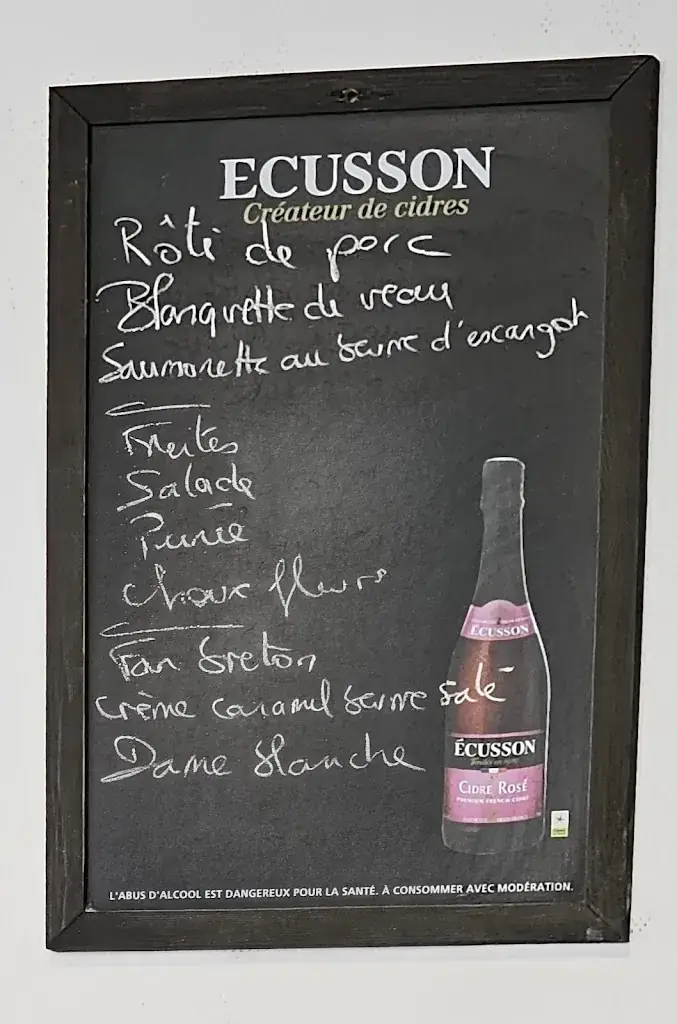 ECUSSON
Créateur de cidres
Rôti de porc
Blanquette de veau
Saumonette au beurre d'escargot
Frites
Salade
Purée
choux fleurs
Far breton
crème caramel beurre salé
Dame blanche
ÉCUSSON
ÉCUSSON
CIDRE ROSÉ
PREMIUM FRENCH CIDER
L'ABUS D'ALCOOL EST DANGEREUX POUR LA SANTÉ. À CONSOMMER AVEC MODÉRATION.